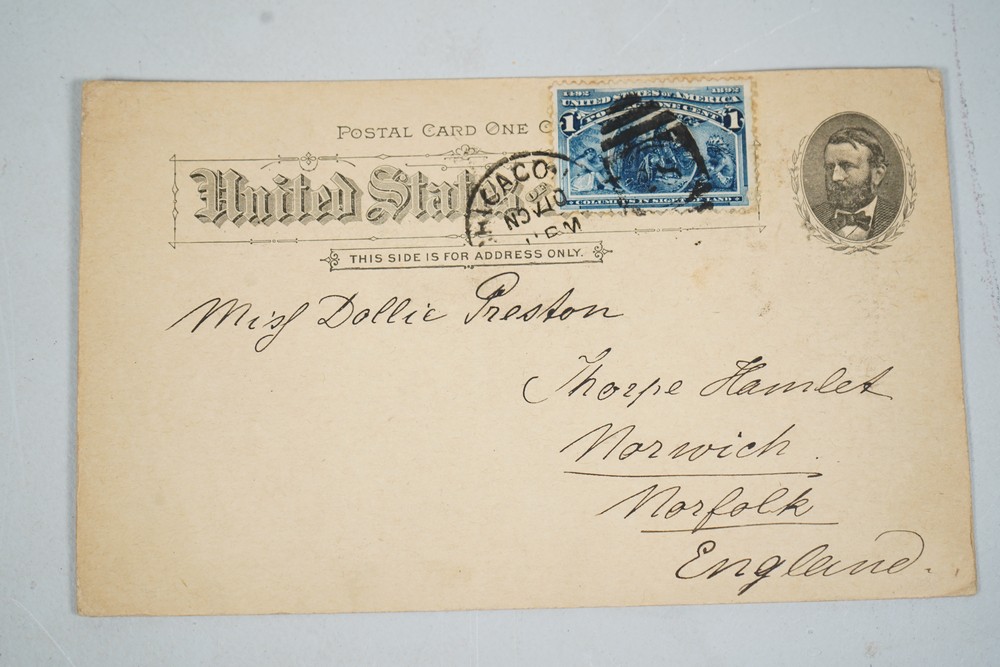 POSTAL CARD ONE C
United Stat
THIS SIDE IS FOR ADDRESS ONLY.
1492 1892
UNITED STATES OF AMERICA
1 1
COLUMBUS IN SIGHT LAND
CHICAGO
NOV 10
11 PM
Miss Dollie Preston
Thorpe Hamlet
Norwich.
Norfolk
England.